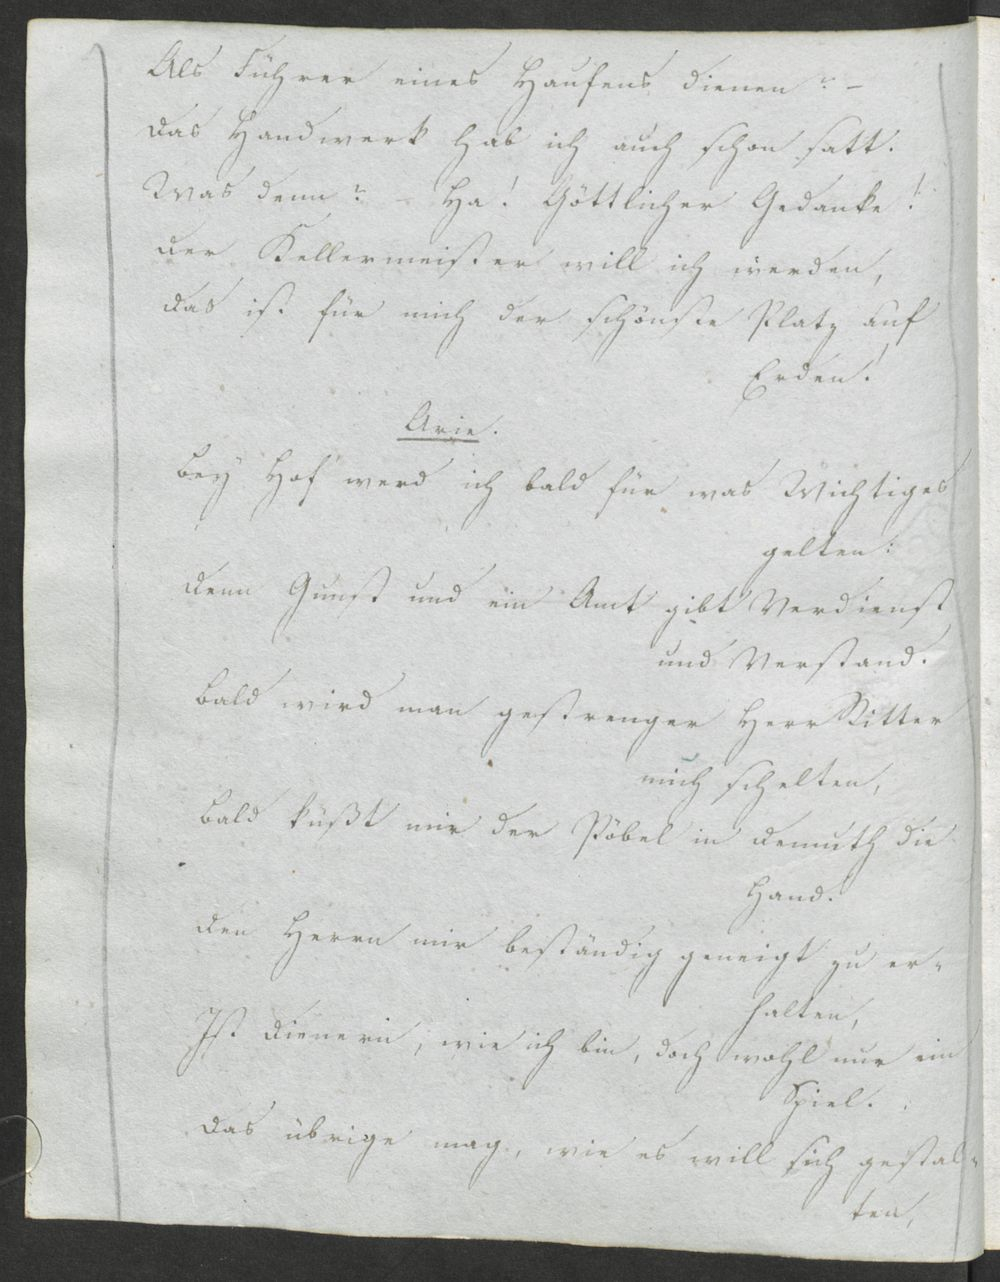 Als Führer eines Haufens dienen? –
Das Handwerk hab ich auch schon satt.
Was denn? – Ha! Göttlicher Gedanke!
Der Kellermeister will ich werden,
Das ist für mich der schönste Platz auf
Erden!
Arie.
Bey Hof werd ich bald für was Wichtiges
gelten:
Denn Gunst und ein Amt gibt Verdienst
und Verstand.
Bald wird man gestrenger Herr Ritter
mich schelten,
Bald küßt mir der Pöbel in Demuth die
Hand.
Den Herrn mir beständig geneigt zu er-
halten,
Ist Dienern, wie ich bin, doch wohl nur ein
Spiel.
Das übrige mag, wie es will sich gestal-
ten,